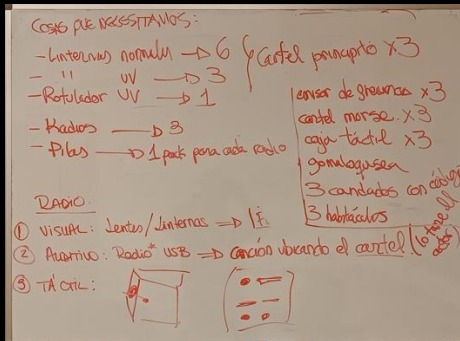 COSAS QUE NECESITAMOS:
- Linternas normales → 6
- " UV → 3
- Rotulador UV → 1
- Radios → 3
- Pilas → 1 pack para cada radio
Cartel principio x3
x3
cartel morse. x3
caja táctil x3
3 candados con código
3 habitáculos
RADIO.
① VISUAL: Lentes/Linternas ⇒
② AUDITIVO: Radio* USB ⇒ canción ubicando el cartel (lo tiene el actor)
③ TÁCTIL: